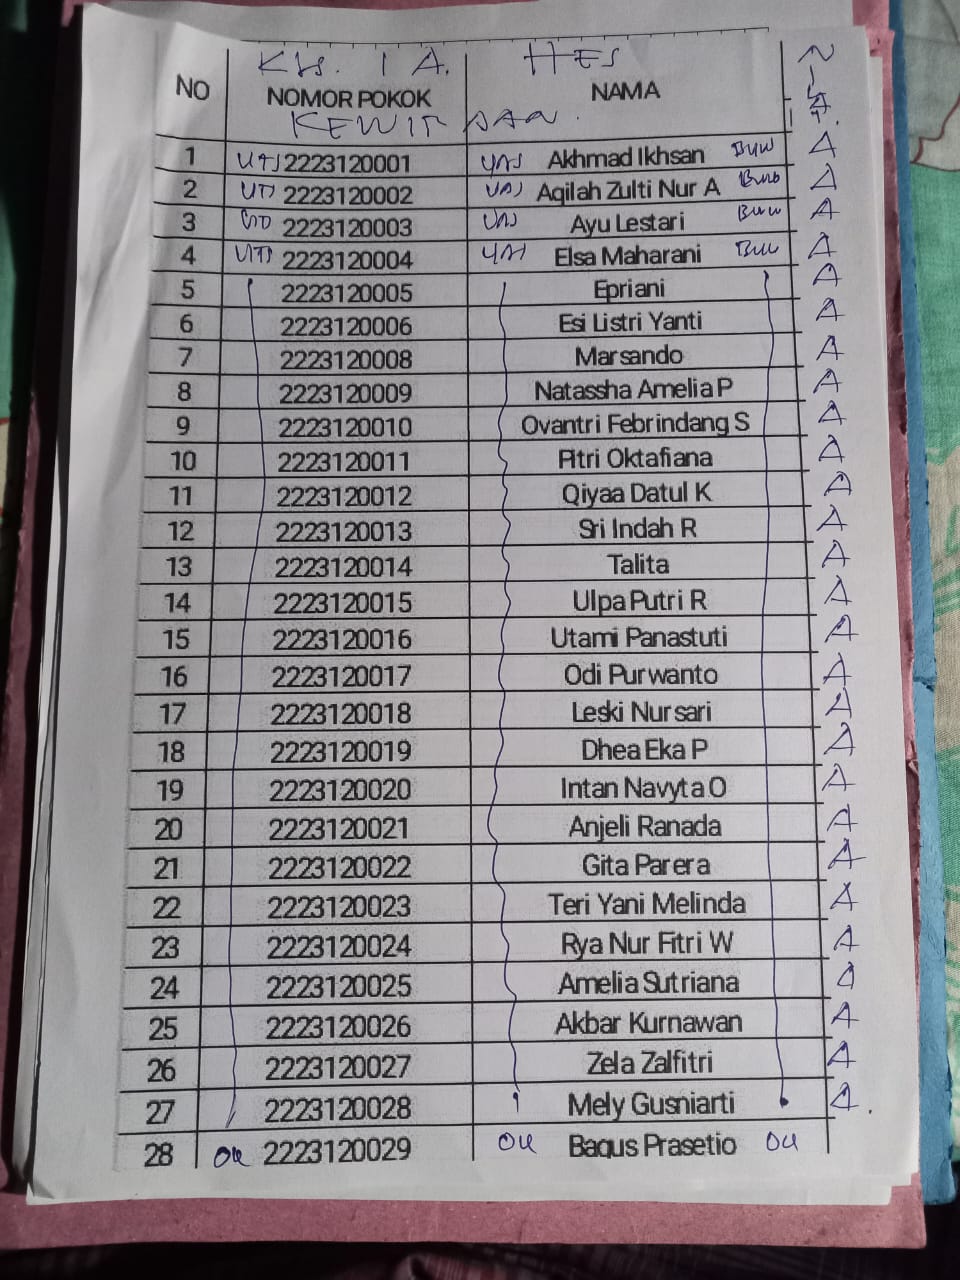 KLS. I A. HES
NO NOMOR POKOK NAMA NILAI
KEWIRASAAN.
1 UTS 2223120001 UAS Akhmad Ikhsan A
2 UTS 2223120002 UAS Aqilah Zulti Nur A A
3 2223120003 UAS Ayu Lestari A
4 UTS 2223120004 UAS Elsa Maharani A
5 2223120005 Epriani A
6 2223120006 Esi Listri Yanti A
7 2223120008 Marsando A
8 2223120009 Natassha Amelia P A
9 2223120010 Ovantri Febrindang S A
10 2223120011 Fitri Oktafiana A
11 2223120012 Qiyaa Datul K A
12 2223120013 Sri Indah R A
13 2223120014 Talita A
14 2223120015 Ulpa Putri R A
15 2223120016 Utami Panastuti A
16 2223120017 Odi Purwanto A
17 2223120018 Leski Nursari A
18 2223120019 Dhea Eka P A
19 2223120020 Intan Navyta O A
20 2223120021 Anjeli Ranada A
21 2223120022 Gita Parera A
22 2223120023 Teri Yani Melinda A
23 2223120024 Rya Nur Fitri W A
24 2223120025 Amelia Sutriana A
25 2223120026 Akbar Kurnawan A
26 2223120027 Zela Zalfitri A
27 2223120028 Mely Gusniarti A.
28 2223120029 Bagus Prasetio